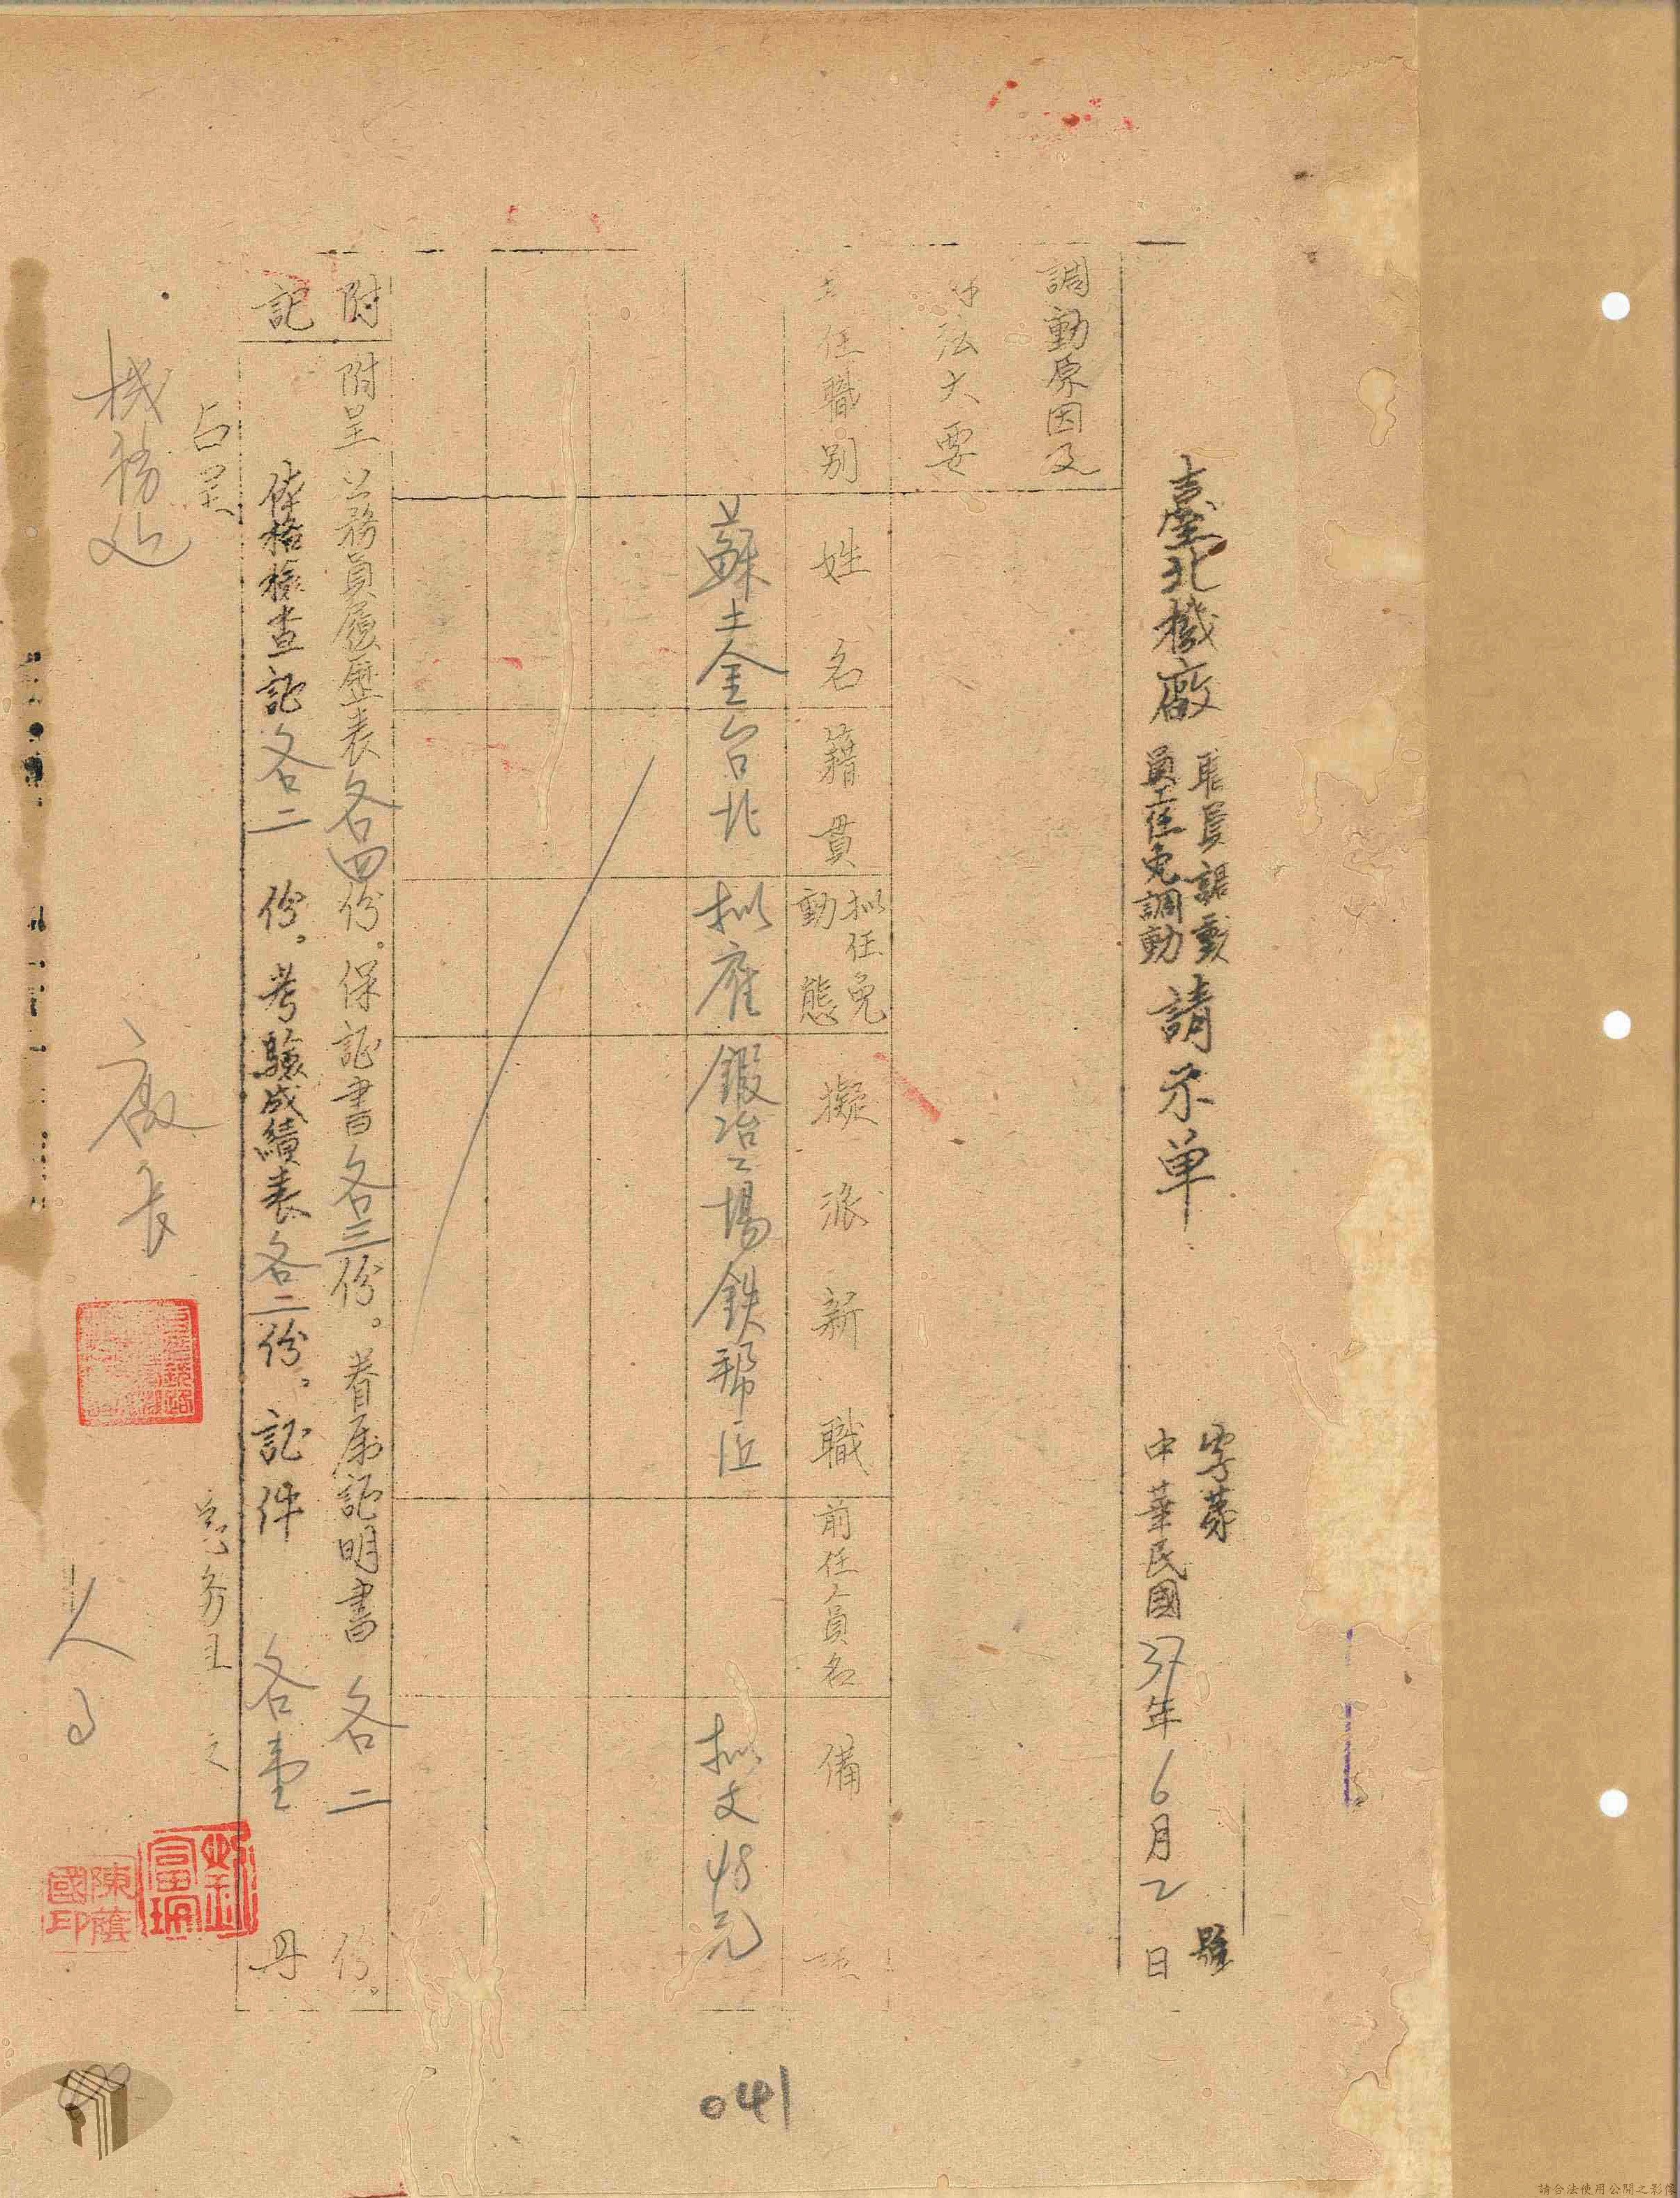 臺北機廠
職員調動
員工任免調動
請示单
字第 號
中華民國37年6月2日
調動原因及
办法大要
任職別
姓名
籍貫
拟任免
動態
擬派新職
前任人員名
備
蘇土金
台北
拟雇
鍛冶場鉄幫匠
拟支48元
附記
附呈公務員履歷表各四份。保証書各三份。眷属証明書各二份。
体格檢查証各二份。考驗成績表各二份。証件各壹
右呈
機務処
廠長
陳蔭國印
041
請合法使用公開之影像